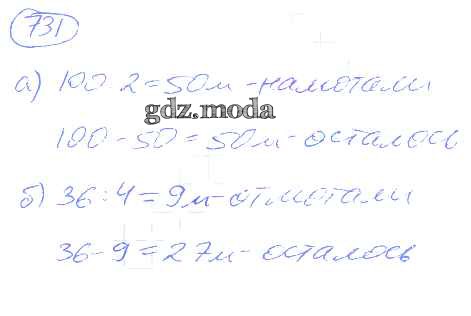 731
а) 100 2 = 50м - намотали
gdz.moda
100 - 50 = 50м - осталось
б) 36 : 4 = 9м - отмотали
36 - 9 = 27м - осталось